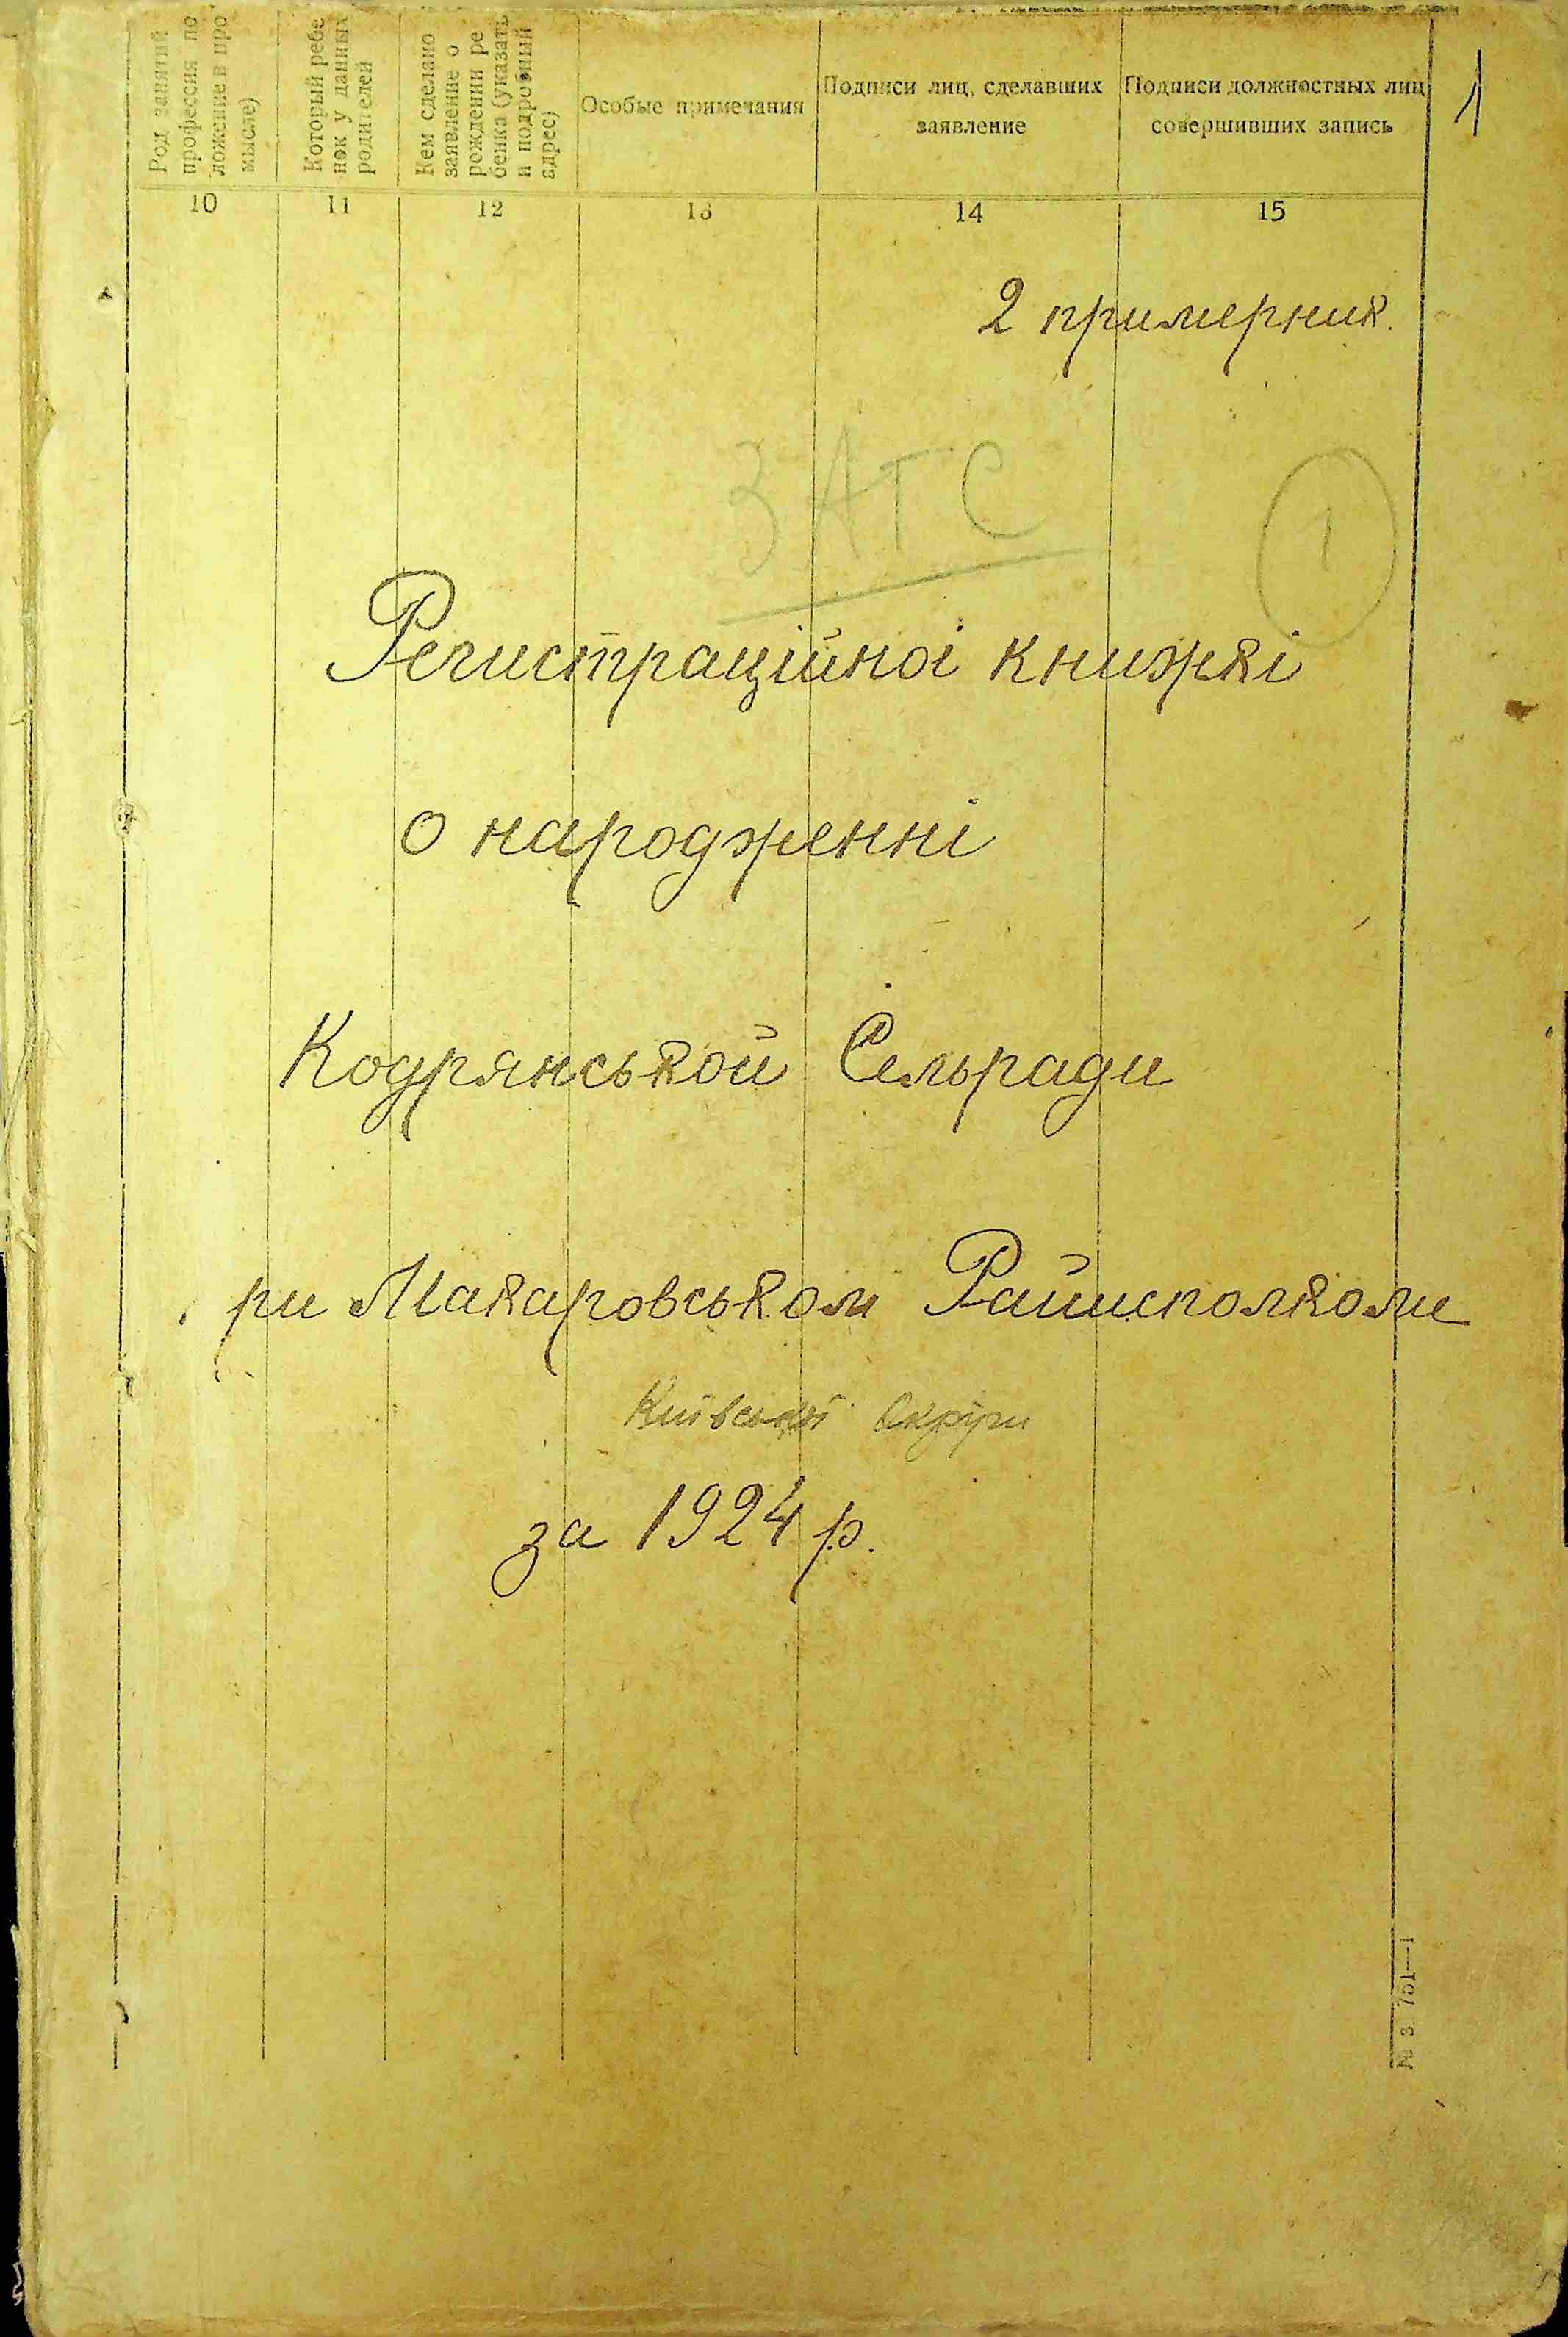 Род занятий
профессия по
ложение в про
мысле)
Который ребе
нок у данных
родителей
Кем сделано
заявление о
рождении ре
бенка (указать
и подробный
адрес)
Особые примечания
Подписи лиц, сделавших
заявление
Подписи должностных лиц
совершивших запись
1
10 11 12 13 14 15
2 примерник.
ЗАГС
1
Регистраційноі книжкі
о народженні
Кодрянськой Сельради
ри Макаровськом Райисполкоми
Київської Округи
за 1924 р.
№ 3. 751—1